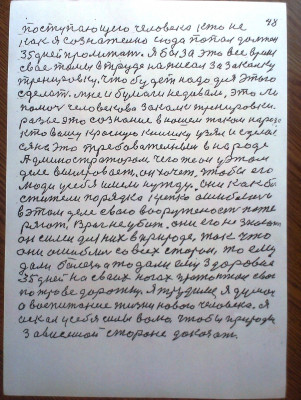 48
поступающего человека кто не
как я сознательно сюда попал должен
35 дней пролежать. Я бы за это все время
свое тело в труде написал за закалку
тренировку, что будет надо для этого
сделать мне и бумаги не давали, это ли
помочь человекова закалки тренировки.
разве это сознание в нашем таком народе
кто вашу красную книжку узял и сделал
ся на это требовательным в народе
Администратором чего же он у этом
деле выигрывает, он хочет, чтобы его
люди у себя имели нужду. Они как бы
стители порядка крепко ошиблись
в этом деле свою вооруженость поте
ряют, Враг не убит, они его не знают
он силен для них в природе, так что
они ошиблись со всех сторон, то ему
дали болезнь а то дали ему здоровье
35 дней на своих ногах протоптал свою
по траве дорожку. Я трудился, я думал
о воспитание жизни нового человека. Я
искал у себя силы воли чтобы природы
зависимой стороне доказать.